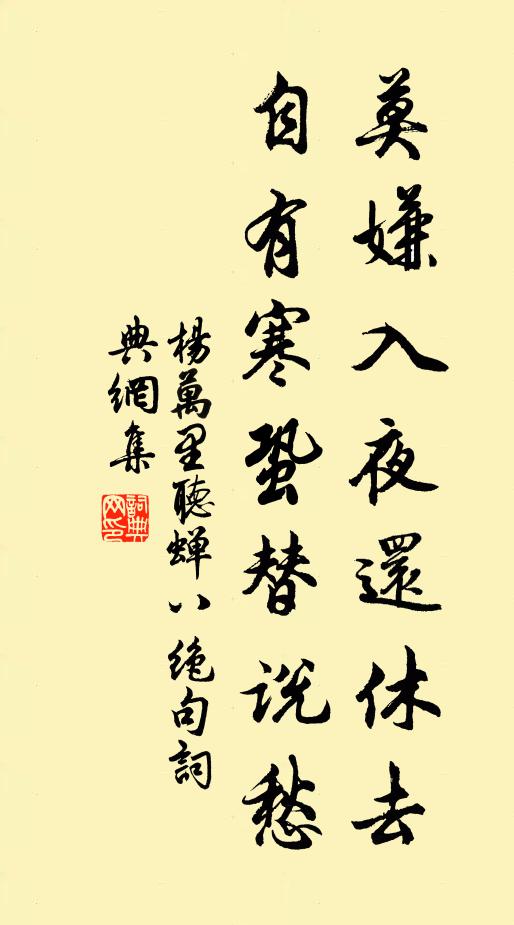 莫嫌入夜還休去
自有寒蛩替説愁
楊萬里聽蟬八絶句詞
典網集
詞典
网印